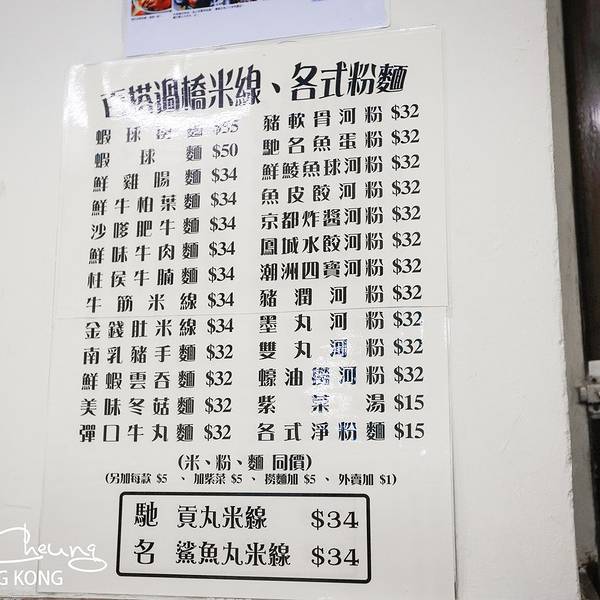 百搭過橋米線、各式粉麵
蝦球麵 $55
蝦球麵 $50
鮮雞腸麵 $34
鮮牛柏葉麵 $34
沙嗲肥牛麵 $34
鮮味牛肉麵 $34
柱侯牛腩麵 $34
牛筋米線 $34
金錢肚米線 $34
南乳豬手麵 $32
鮮蝦雲吞麵 $32
美味冬菇麵 $32
彈口牛丸麵 $32
豬軟骨河粉 $32
馳名魚蛋粉 $32
鮮鯪魚球河粉 $32
魚皮餃河粉 $32
京都炸醬河粉 $32
鳳城水餃河粉 $32
潮洲四寶河粉 $32
豬潤河粉 $32
墨丸河粉 $32
雙丸河粉 $32
蠔油撈河粉 $32
紫菜湯 $15
各式淨粉麵 $15
(米、粉、麵 同價)
(另加每款 $5 、加紫菜 $5 、撈麵加 $5 、外賣加 $1)
馳 貢丸米線 $34
名 鯊魚丸米線 $34
Cheung
G KONG